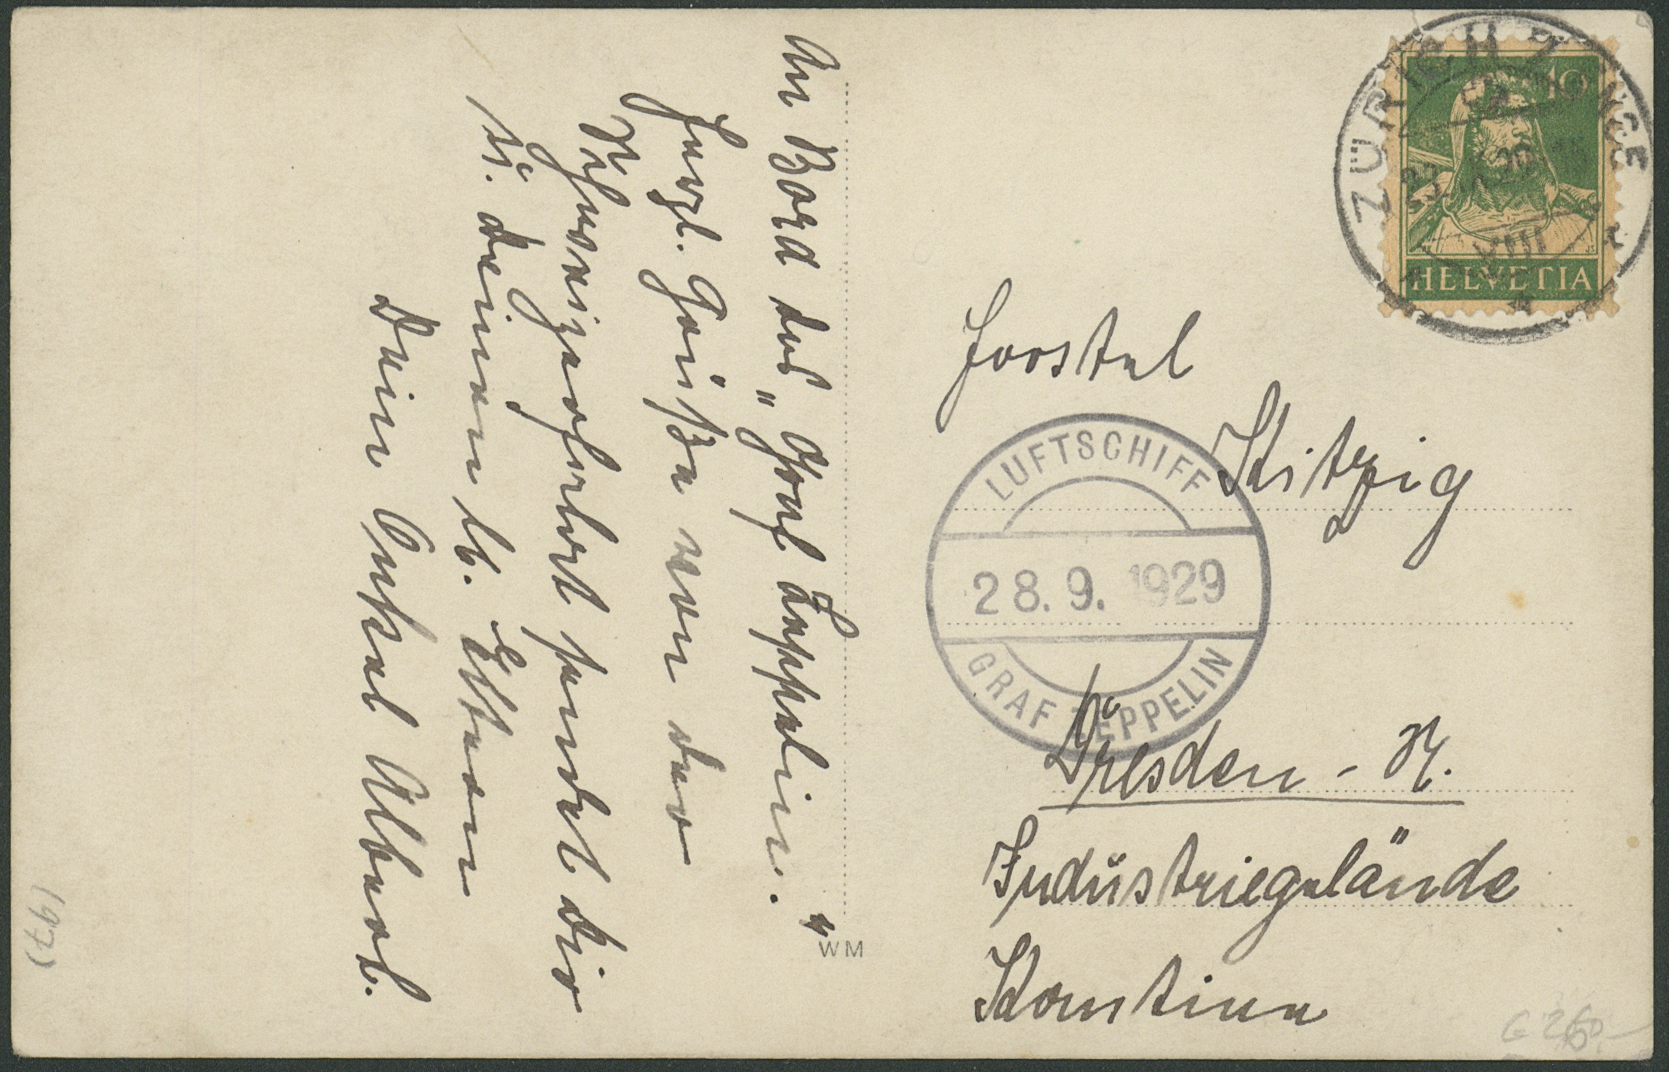 An Bord des „Graf Zeppelin."
Herzl. Grüße von der
Schweizerfahrt sendet dir
u. deinen lb. Eltern
Dein Onkel Albert.
WM
ZÜRICH ENGE
10
HELVETIA
Joostel
Kitzig
LUFTSCHIFF
28. 9. 1929
GRAF ZEPPELIN
Dresden - N.
Industriegelände
Kantine
(97)